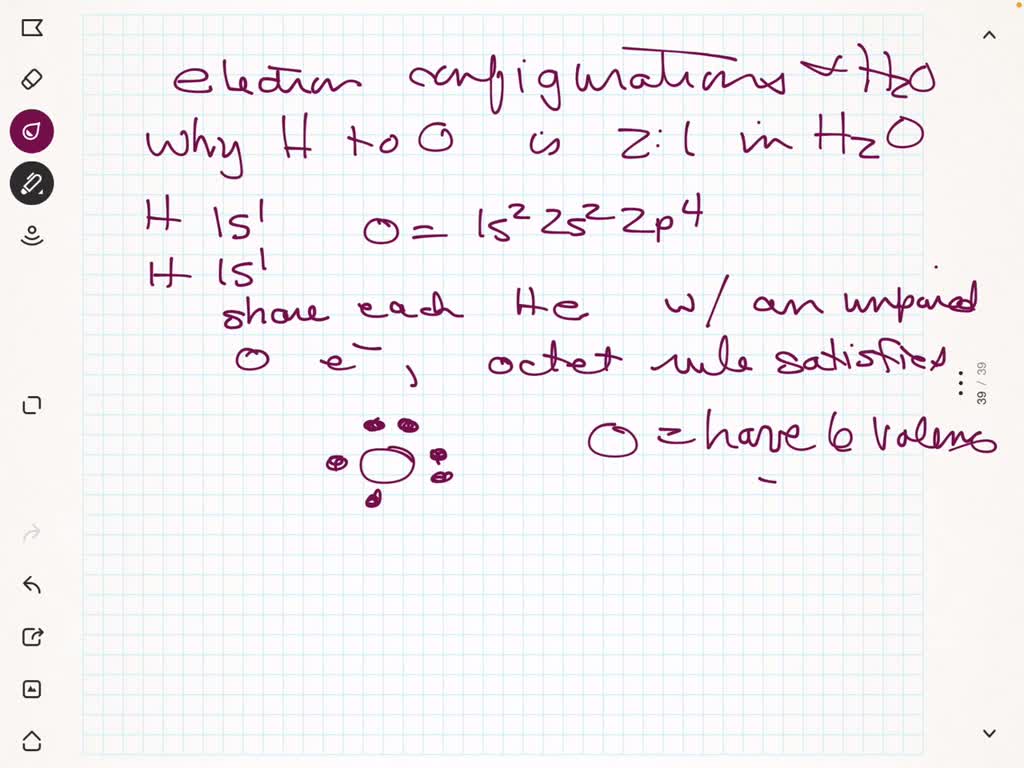 electron configurations & H₂O
why H to O is 2:1 in H₂O
H 1s¹ O = 1s² 2s² 2p⁴
H 1s¹
share each H e w/ an unpaired
O e⁻, octet rule satisfies
O = have 6 valens
39 / 39